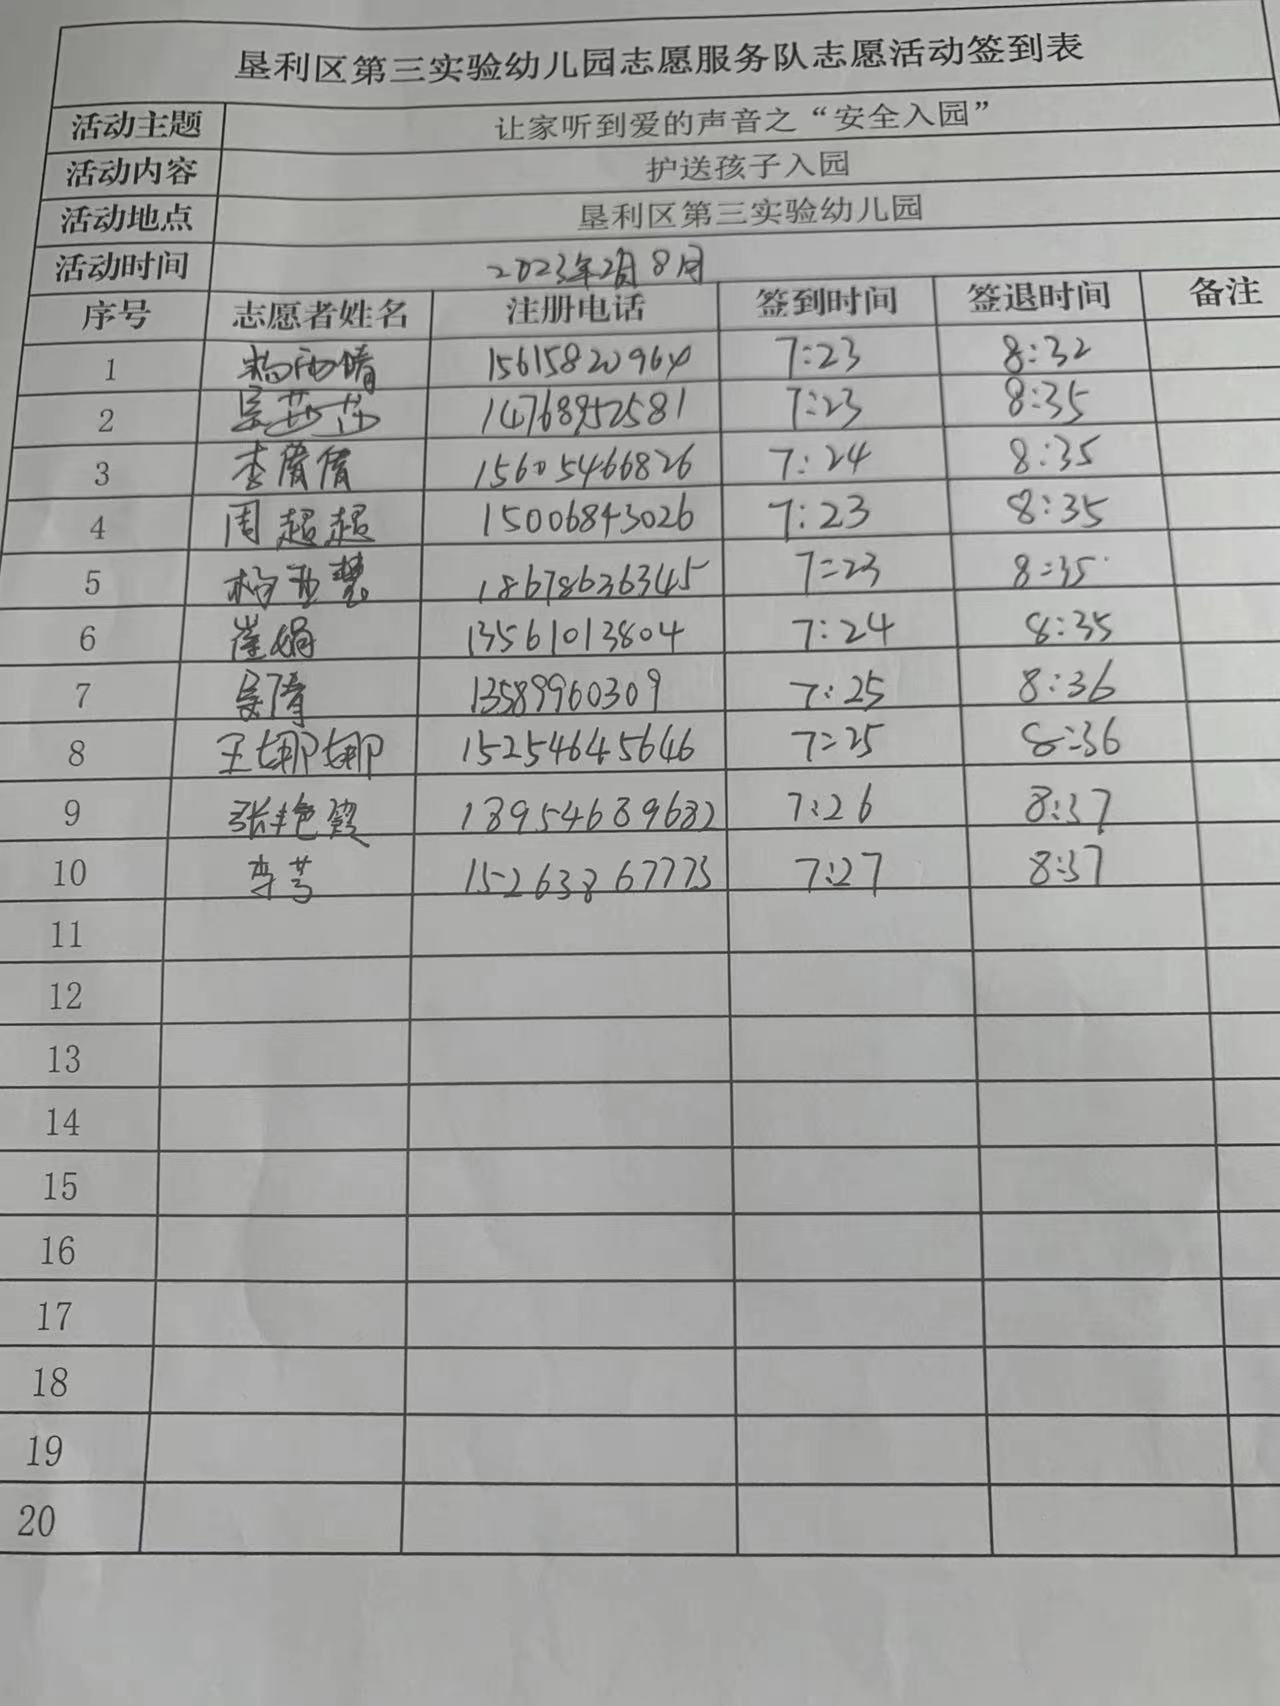 垦利区第三实验幼儿园志愿服务队志愿活动签到表
活动主题 让家听到爱的声音之“安全入园”
活动内容 护送孩子入园
活动地点 垦利区第三实验幼儿园
活动时间 2023年2月8日
序号 志愿者姓名 注册电话 签到时间 签退时间 备注
1 杨雨晴 15615820964 7:23 8:32
2 吴莎莎 14768952581 7:23 8:35
3 李倩倩 15605466826 7:24 8:35
4 周超超 15006843026 7:23 8:35
5 杨亚慧 18678636345 7:23 8:35
6 崔娟 13561013804 7:24 8:35
7 吴倩 13589960309 7:25 8:36
8 王娜娜 15254645646 7:25 8:36
9 张艳 18954689682 7:26 8:37
10 李 15263867773 7:27 8:37
11
12
13
14
15
16
17
18
19
20